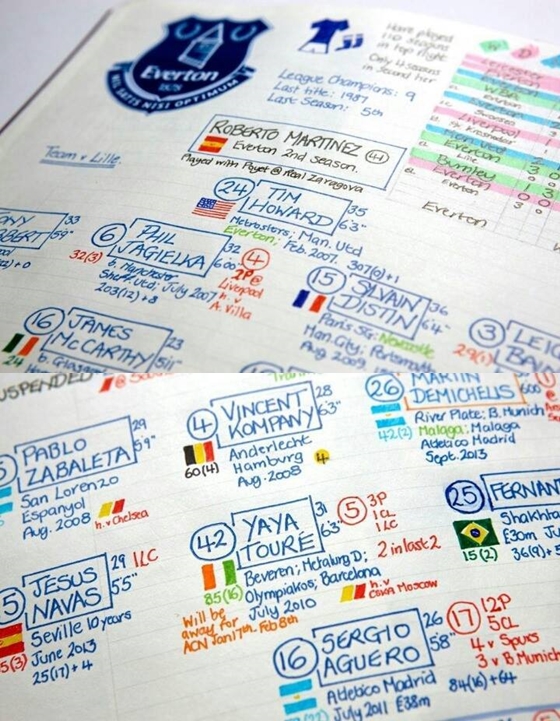 Everton
1878
NIL SATIS NISI OPTIMUM
Have played
110 seasons
in top flight
Only 4 seasons
in second tier
League Champions: 9
Last title: 1987
Last Season: 5th
ROBERTO MARTINEZ 41
Everton 2nd season.
Played with Poyet @ Real Zaragova
Team v Lille.
Leicester
Everton
WBA
Everton
Everton
Swansea
Liverpool
Everton
Man Utd
Everton
Lille
Burnley
Everton
Everton
24 TIM
HOWARD
35
6'3"
Metrostars; Man. Utd
Everton; Feb. 2007. 307(0)+1
33
5'9"
6 PHIL
JAGIELKA
32
6'00
32(3)
b. Manchester
Sheff. Utd; July 2007
203(12)+8
4
2P@
Liverpool
h. v
A. Villa
15 SYLVAIN
DISTIN
36
6'4"
Paris SG; Newcastle
Man. City; Portsmouth
Aug 2009
3 LEIG
BA
29(1)
16 JAMES
McCARTHY
23
5'11"
24
b. Glasgow
SUSPENDED
PABLO
ZABALETA
29
5'9"
San Lorenzo
Espanyol
Aug. 2008
h. v Chelsea
4 VINCENT
KOMPANY
28
6'3"
60(4)
Anderlecht
Hamburg
Aug. 2008
4
26 MARTIN
DEMICHELIS
600
42(2)
River Plate; B. Munich
Malaga; Malaga
Atletico Madrid
Sept. 2013
5 JESUS
NAVAS
29 1LC
5'5"
Seville 10 years
5(3) June 2013
25(17)+4
42 YAYA
TOURÉ
31
6'3"
5 3P
1CL
1LC
2 in last 2
85(16)
Beveren; Metalurg D;
Olympiakos; Barcelona
July 2010
h. v
CSKA Moscow
Will be
away for
ACN Jan 17th-Feb 8th
25 FERNAN
15(2)
Shakhta
£30m Ju
36(9)+5
16 SERGIO
AGUERO
26
5'8"
Atletico Madrid
July 2011 £38m
84(16)+64
17 12P
5CL
4 v Spurs
3 v B. Munich